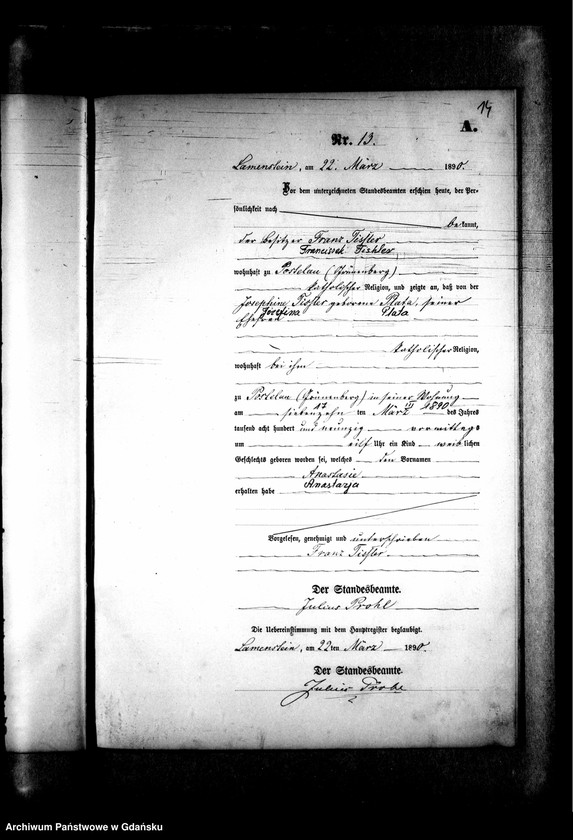 14
A.
Nr. 13.
Lamenstein, am 22. März 1890.
Vor dem unterzeichneten Standesbeamten erschien heute, der Per-
sönlichkeit nach
bekannt,
der Besitzer Franz Fissler
Franciszek Fishler,
wohnhaft zu Postelau (Grünenberg)
katholischer Religion, und zeigte an, daß von der
Josephine Fissler geborene Plata, seiner
Józefina Plata
Ehefrau
katholischer Religion,
wohnhaft bei ihm
zu Postelau (Grünenberg) in seiner Wohnung
17 III 1890
am siebenzehn ten März des Jahres
tausend acht hundert und neunzig vormittags
um elf Uhr ein Kind weiblichen
Geschlechts geboren worden sei, welches den Vornamen
Anastasie
Anastazja
erhalten habe
Vorgelesen, genehmigt und unterschrieben
Franz Fissler
Der Standesbeamte.
Julius Prohl
Die Uebereinstimmung mit dem Hauptregister beglaubigt.
Lamenstein, am 22ten März 1890.
Der Standesbeamte.
Julius
Archiwum Państwowe w Gdańsku